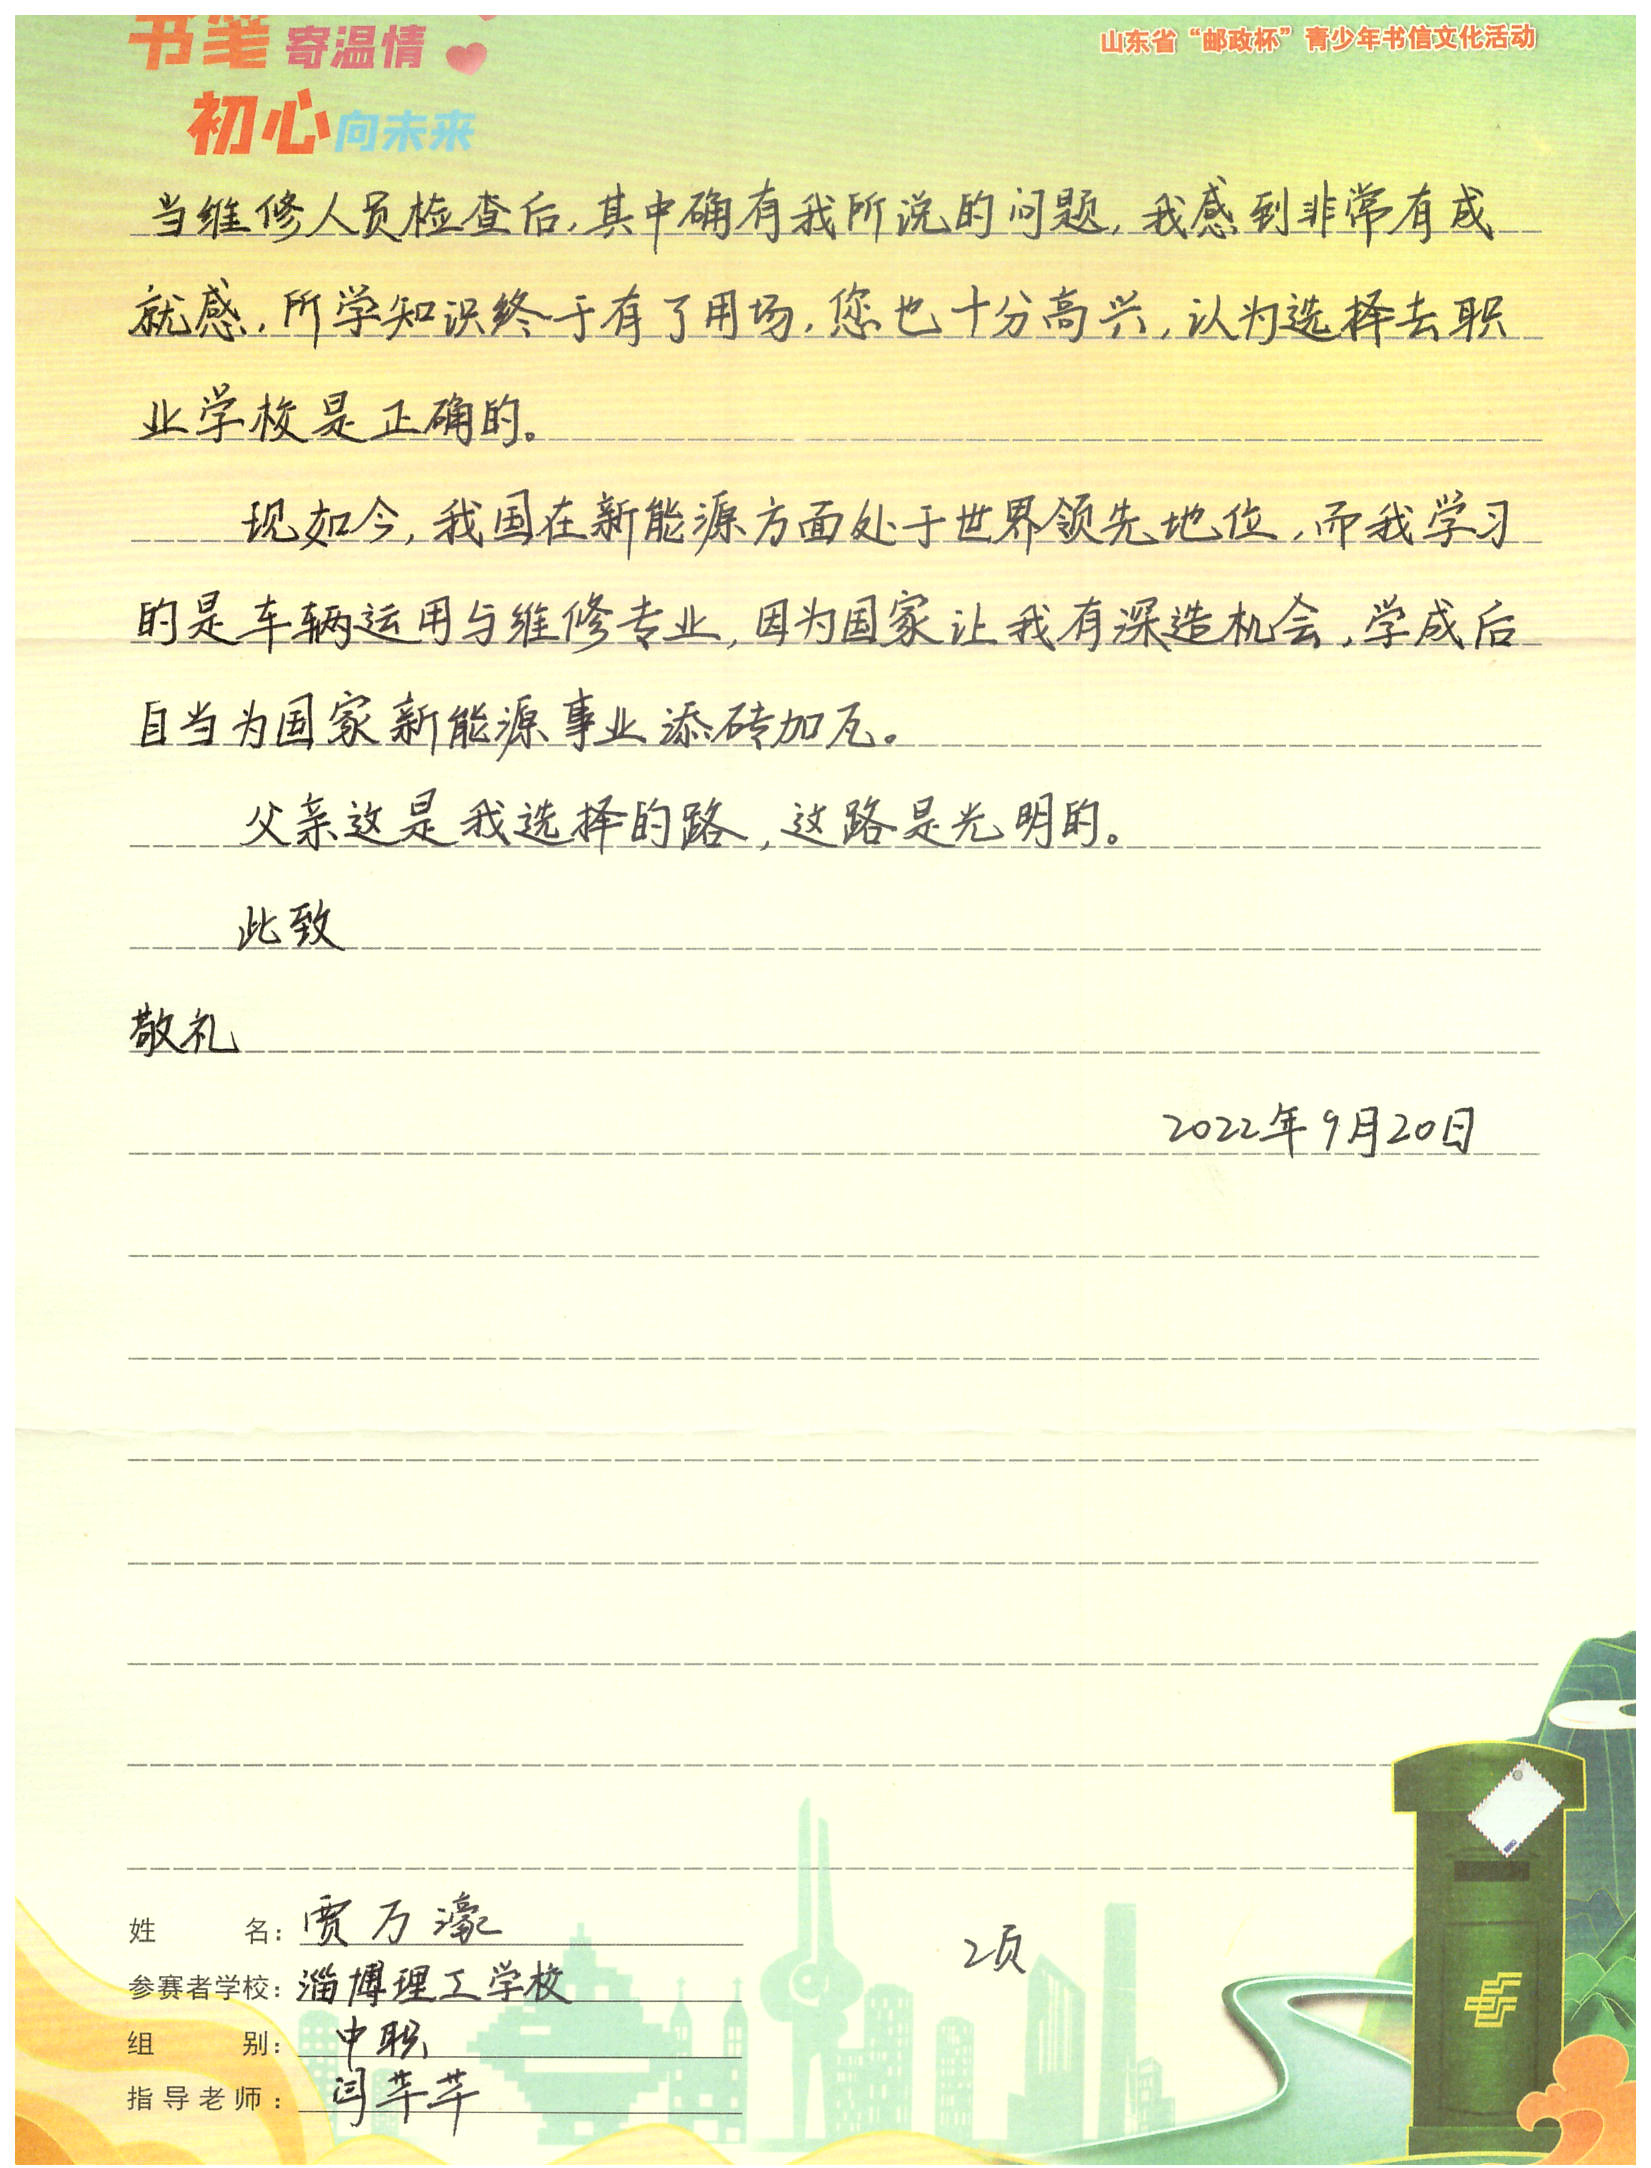 书笔寄温情
山东省“邮政杯”青少年书信文化活动
初心向未来
当维修人员检查后,其中确有我所说的问题,我感到非常有成
就感,所学知识终于有了用场,您也十分高兴,认为选择去职
业学校是正确的。
现如今,我国在新能源方面处于世界领先地位,而我学习
的是车辆运用与维修专业,因为国家让我有深造机会,学成后
自当为国家新能源事业添砖加瓦。
父亲这是我选择的路,这路是光明的。
此致
敬礼
2022年9月20日
姓名:贾万濠
2页
参赛者学校:淄博理工学校
组别:中职
指导老师:闫芊芊